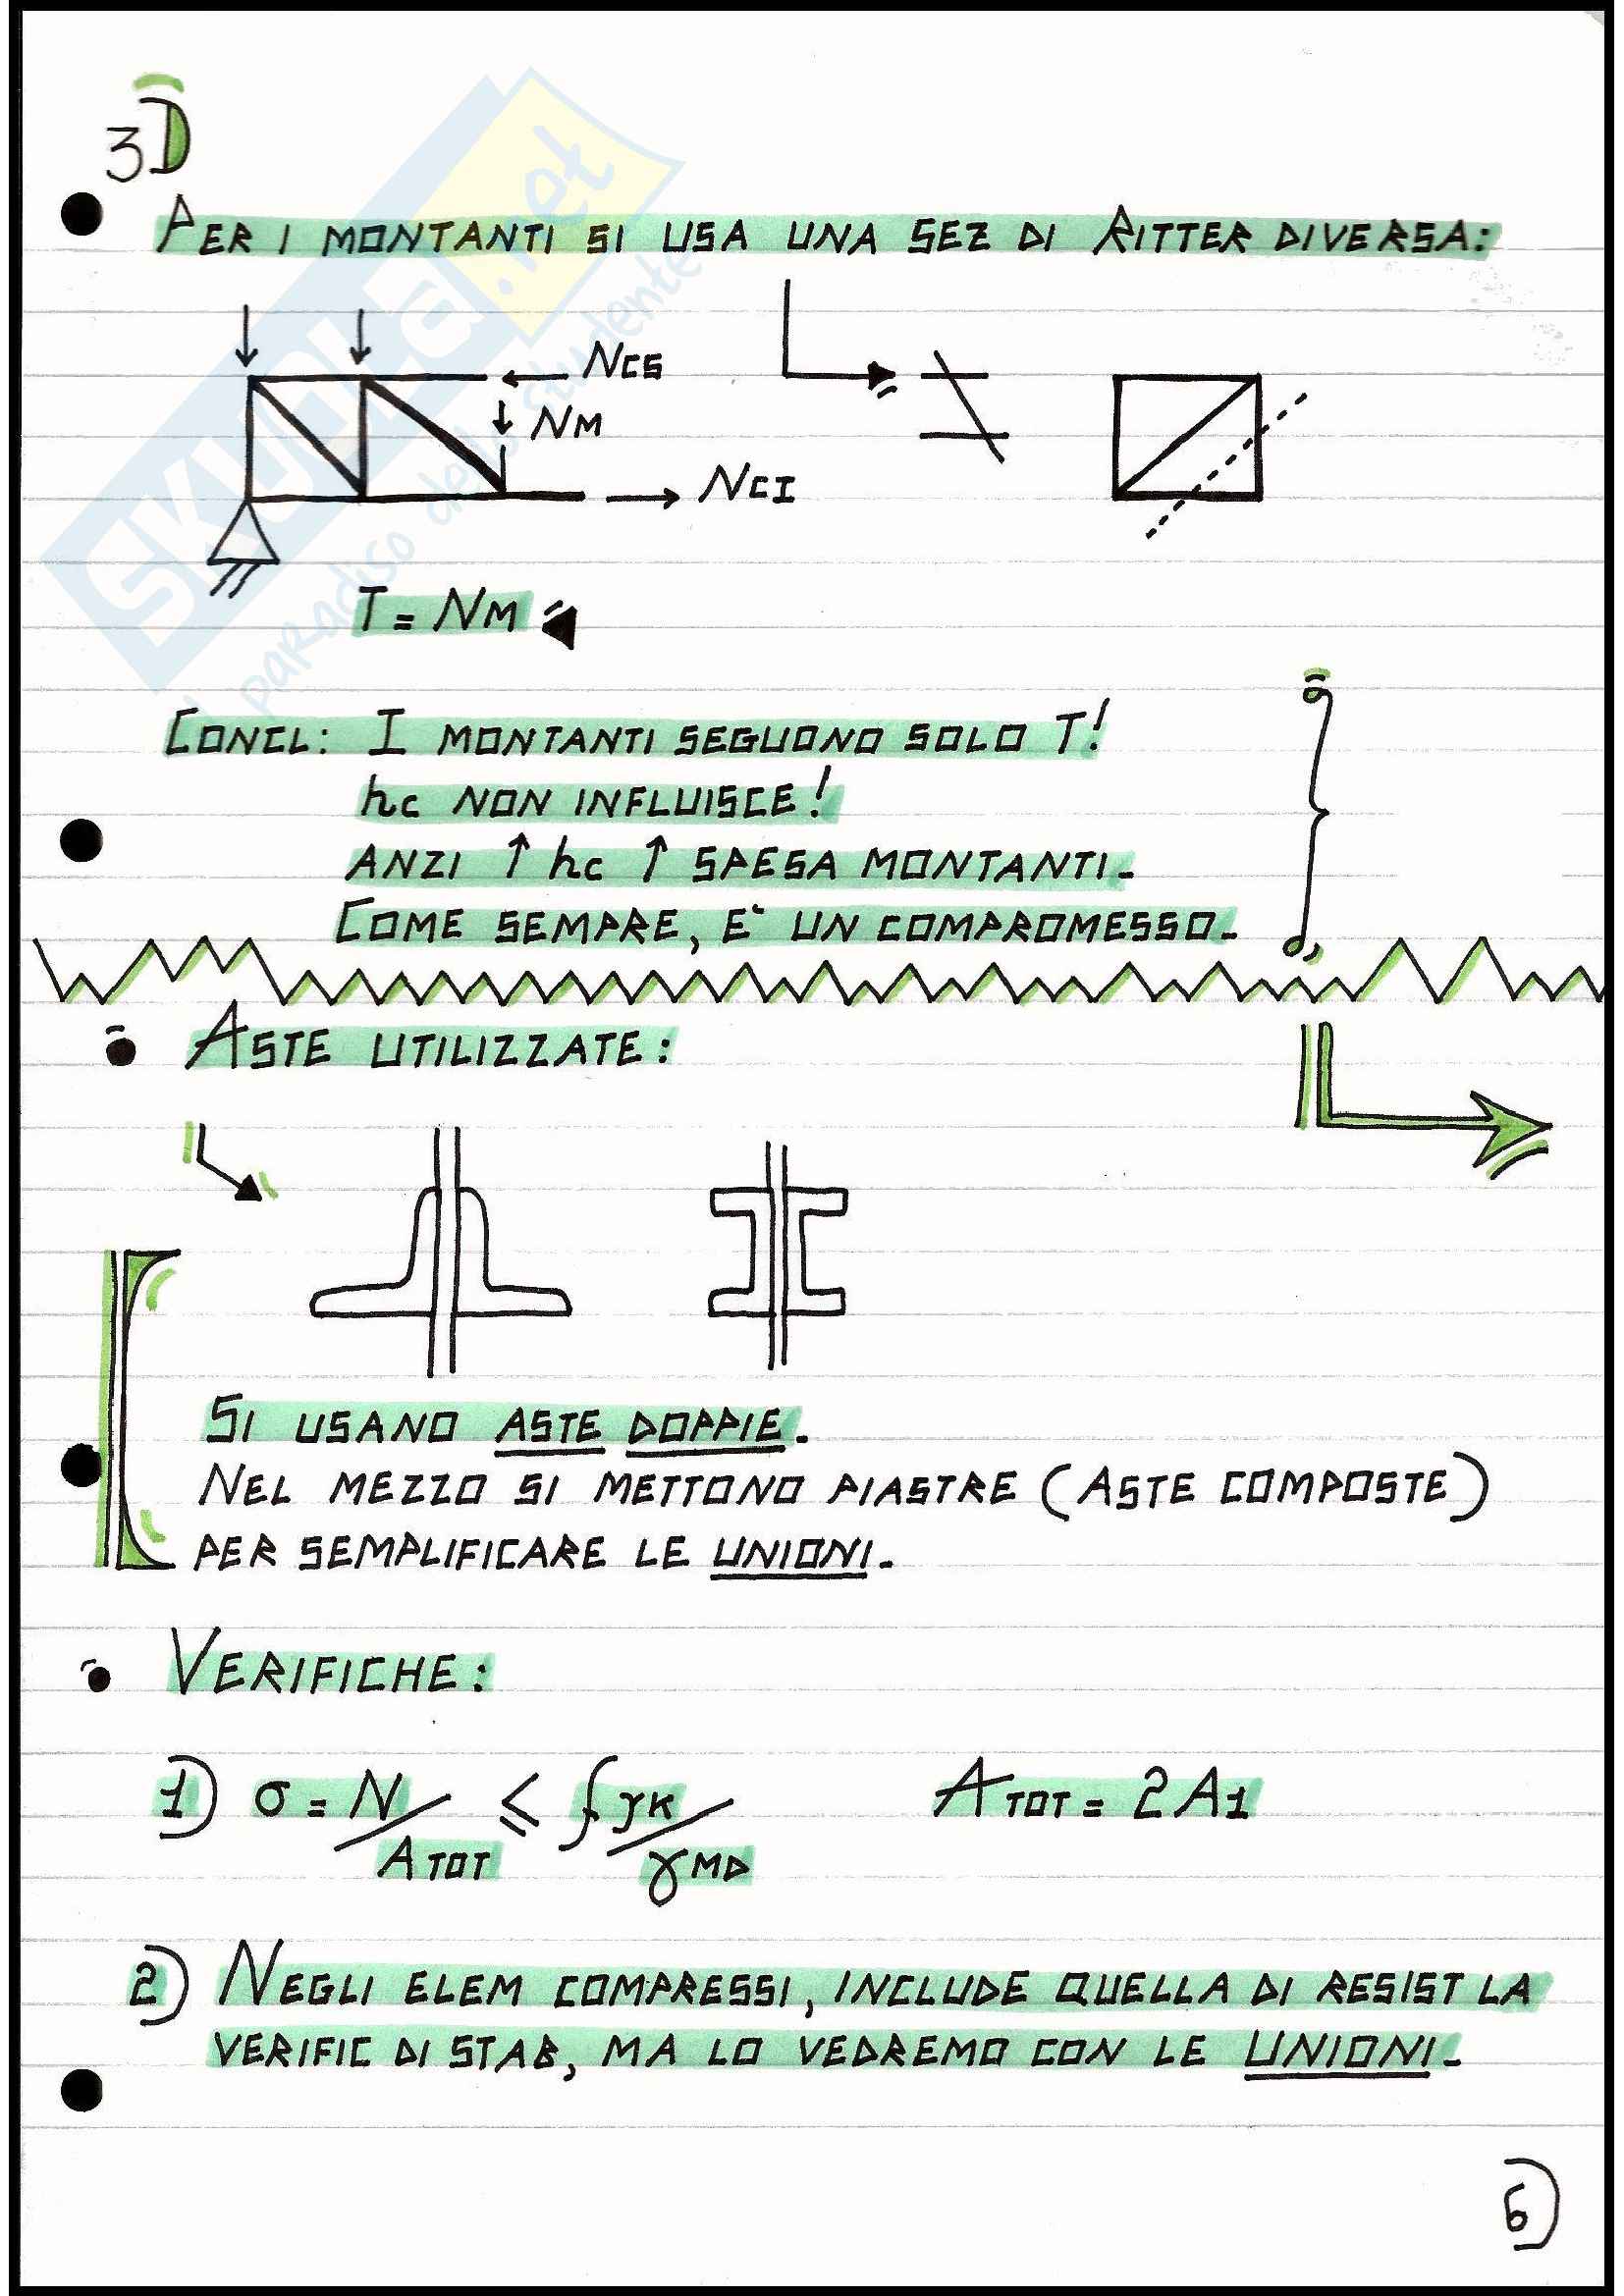 3D
PER I MONTANTI SI USA UNA SEZ DI RITTER DIVERSA:
NCS
NM
NCI
T = NM
CONCL: I MONTANTI SEGUONO SOLO T!
hc NON INFLUISCE!
ANZI ↑ hc ↑ SPESA MONTANTI-
COME SEMPRE, E' UN COMPROMESSO-
ASTE UTILIZZATE:
SI USANO ASTE DOPPIE-
NEL MEZZO SI METTONO PIASTRE (ASTE COMPOSTE)
PER SEMPLIFICARE LE UNIONI-
VERIFICHE:
1) σ = N/ATOT ≤ fyK/γM0 ATOT = 2A1
2) NEGLI ELEM COMPRESSI, INCLUDE QUELLA DI RESIST LA
VERIFIC DI STAB, MA LO VEDREMO CON LE UNIONI-
6)
SKUOLA.net
il paradiso dello studente